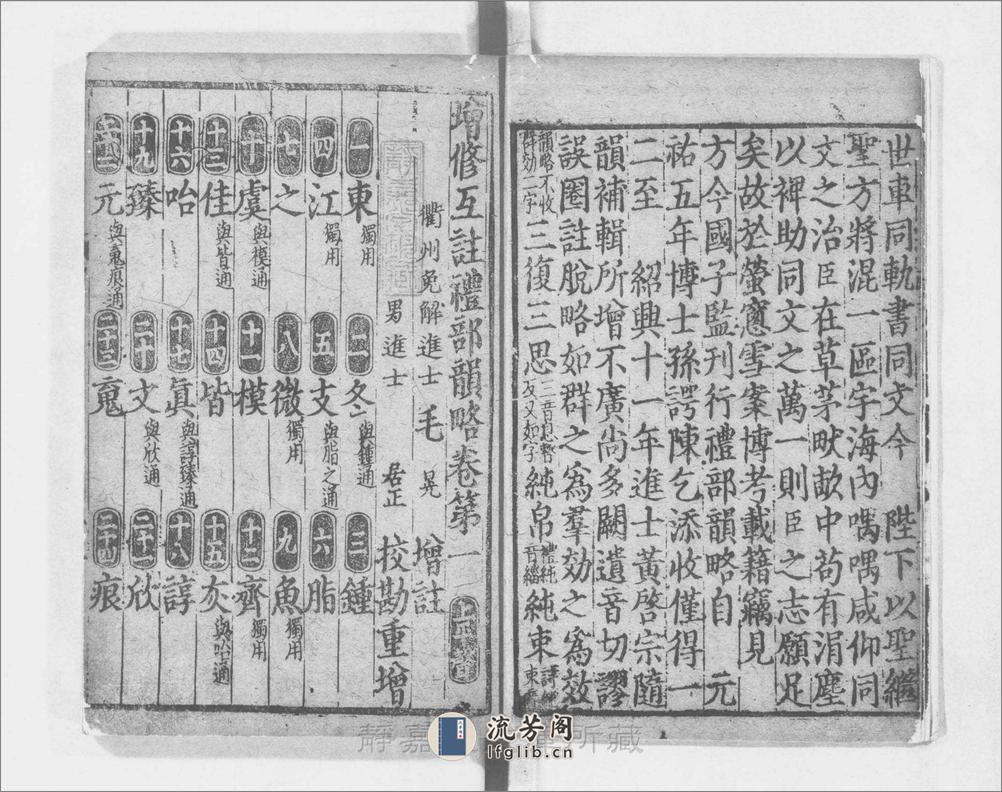 世車同軌書同文今　陛下以聖繼
聖方將混一區宇海內喁喁咸仰同
文之治臣在草茅畎畝中苟有涓塵
以裨助同文之萬一則臣之志願足
矣故於螢窻雪案博考載籍竊見
方今國子監刊行禮部韻略自　元
祐五年博士孫諤陳乞添收僅得一
二至　紹興十一年進士黃啓宗隨
韻補輯所增不廣尚多闕遺音切謬
誤圈註脫略如群之為羣効之為效
韻略不收群効二字三復三思三音息暫反又如字純帛禮純音緇純束
增修互註禮部韻略卷第一
衢州免解進士毛晃增註
男進士居正校勘重增
一東獨用 二冬與鍾通 三鍾
四江獨用 五支與脂之通 六脂
七之 八微獨用 九魚獨用
十虞與模通 十一模 十二齊獨用
十三佳與皆通 十四皆 十五灰與咍通
十六咍 十七眞與諄臻通 十八諄
十九臻 二十文與欣通 二十一欣
二十二元與䰟痕通 二十三䰟 二十四痕
流芳阁
lfglib.cn
静嘉 所藏